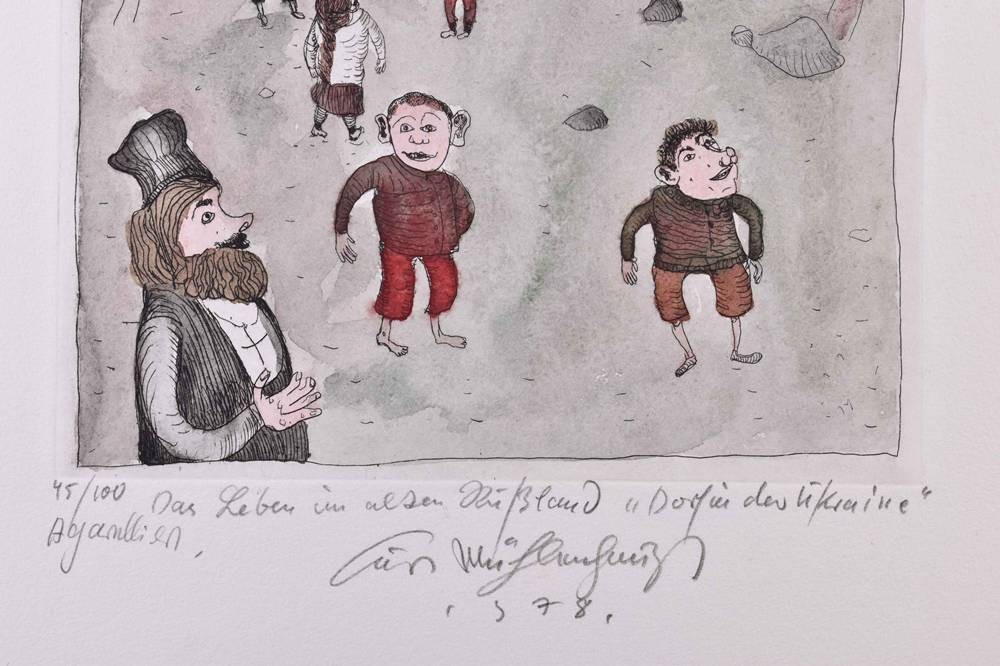 45/100 Das Leben im alten Rußland "Dorf in der Ukraine"
Aquarelliert.
Kurt Mühlenhaupt
1978.